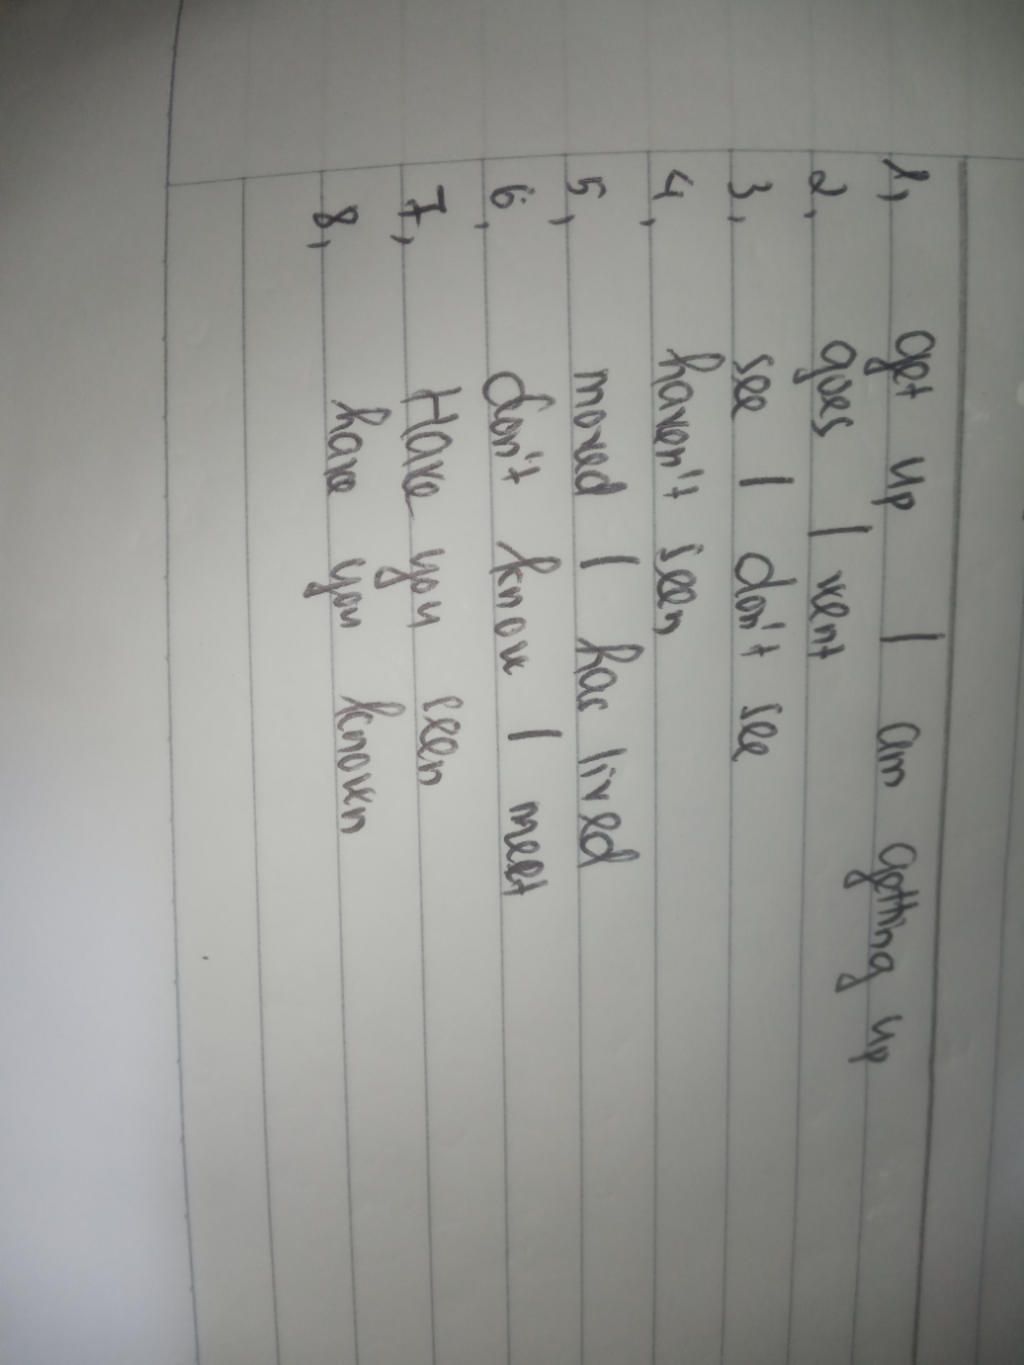 1, get up / am getting up
2, goes / went
3, see / don't see
4, haven't seen
5, moved / has lived
6, don't know / meet
7, Have you seen
8, have you known